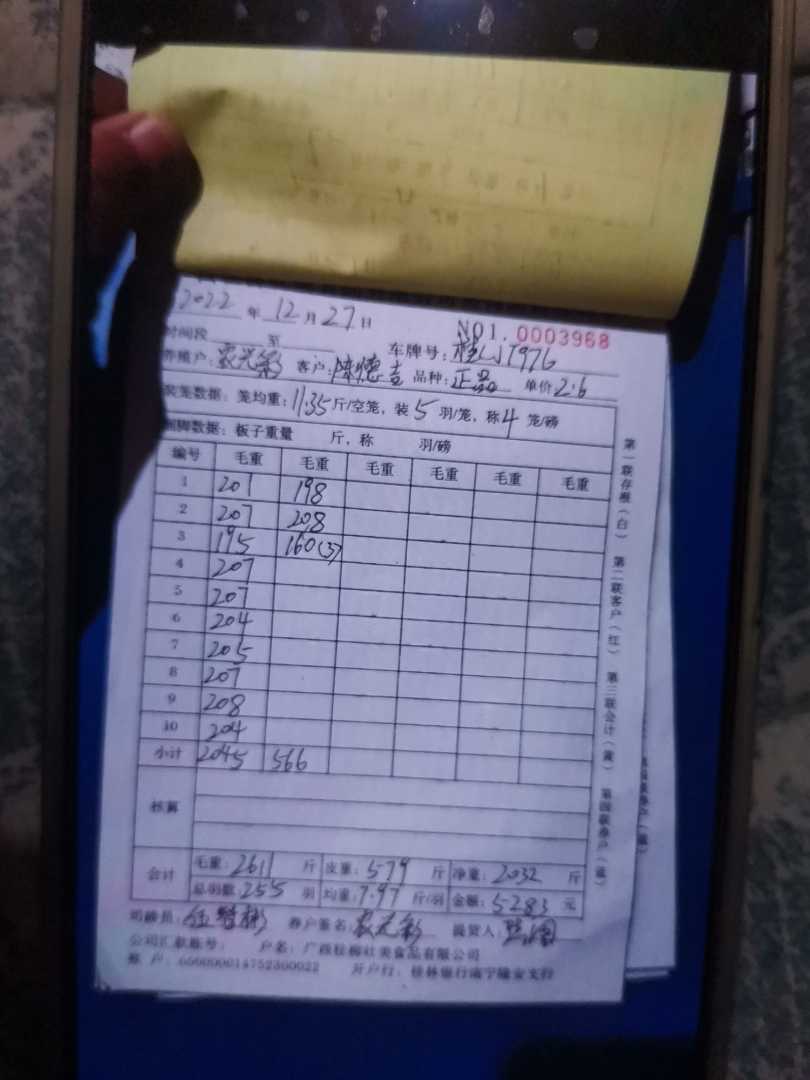 2022 年 12 月 27 日
NO1. 0003968
时间段 至
养殖户: 客户: 陈德吉 车牌号: 桂AJ7976
品种: 正品 单价 2.6
装笼数据: 笼均重: 11.35 斤/空笼, 装 5 羽/笼, 称 4 笼/磅
捆脚数据: 板子重量 斤, 称 羽/磅
编号 毛重 毛重 毛重 毛重 毛重 毛重
1 201 198
2 207 208
3 195 160(3)
4 207
5 207
6 204
7 205
8 207
9 208
10 204
小计 2045 566
核算
合计 毛重: 2611 斤 皮重: 579 斤 净重: 2032 斤
总羽数: 255 羽 均重: 7.97 斤/羽 金额: 5283 元
司磅员: 养户签名: 提货人:
公司汇款账号: 户名: 广西桂柳牡美食品有限公司
账 户: 660000014752300022 开户行: 桂林银行南宁隆安支行
第一联存根(白) 第二联客户(红) 第三联会计(黄) 第四联养户(蓝)